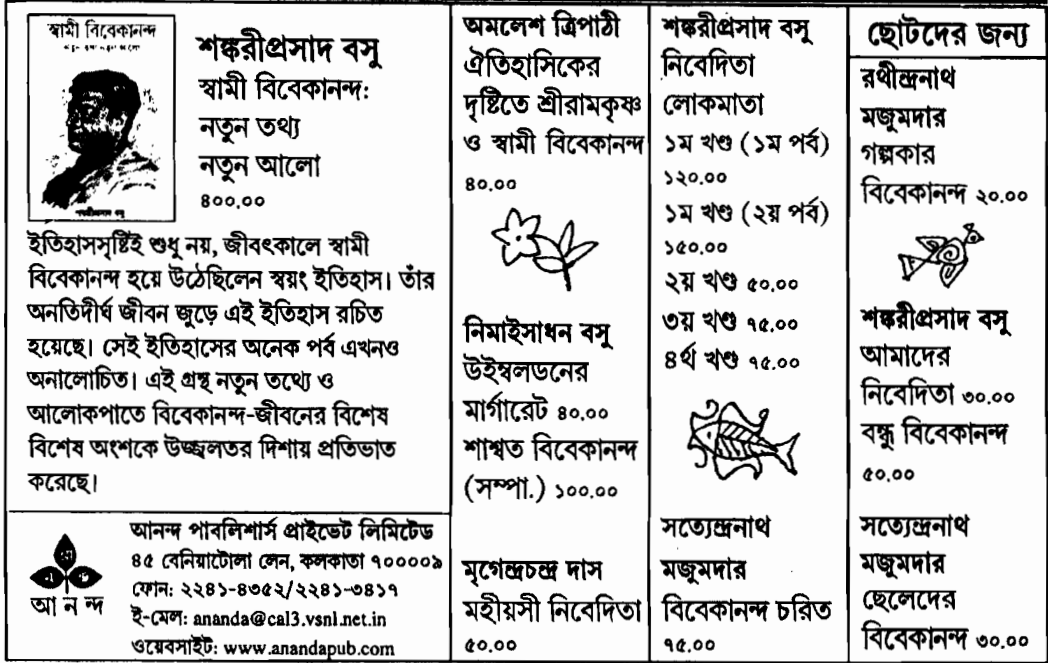 স্বামী বিবেকানন্দ
নতুন তথ্য নতুন আলো
শঙ্করীপ্রসাদ বসু
শঙ্করীপ্রসাদ বসু
স্বামী বিবেকানন্দ:
নতুন তথ্য
নতুন আলো
৪০০.০০
ইতিহাসসৃষ্টিই শুধু নয়, জীবৎকালে স্বামী
বিবেকানন্দ হয়ে উঠেছিলেন স্বয়ং ইতিহাস। তাঁর
অনতিদীর্ঘ জীবন জুড়ে এই ইতিহাস রচিত
হয়েছে। সেই ইতিহাসের অনেক পর্ব এখনও
অনালোচিত। এই গ্রন্থ নতুন তথ্যে ও
আলোকপাতে বিবেকানন্দ-জীবনের বিশেষ
বিশেষ অংশকে উজ্জ্বলতর দিশায় প্রতিভাত
করেছে।
আনন্দ
আনন্দ পাবলিশার্স প্রাইভেট লিমিটেড
৪৫ বেনিয়াটোলা লেন, কলকাতা ৭০০০০৯
ফোন: ২২৪১-৪৩৫২/২২৪১-৩৪১৭
ই-মেল: ananda@cal3.vsnl.net.in
ওয়েবসাইট: www.anandapub.com
অমলেশ ত্রিপাঠী
ঐতিহাসিকের
দৃষ্টিতে শ্রীরামকৃষ্ণ
ও স্বামী বিবেকানন্দ
৪০.০০
নিমাইসাধন বসু
উইম্বলডনের
মার্গারেট ৪০.০০
শাশ্বত বিবেকানন্দ
(সম্পা.) ১০০.০০
মৃগেন্দ্রচন্দ্র দাস
মহীয়সী নিবেদিতা
৫০.০০
শঙ্করীপ্রসাদ বসু
নিবেদিতা
লোকমাতা
১ম খণ্ড (১ম পর্ব)
১২০.০০
১ম খণ্ড (২য় পর্ব)
১৫০.০০
২য় খণ্ড ৫০.০০
৩য় খণ্ড ৭৫.০০
৪র্থ খণ্ড ৭৫.০০
সত্যেন্দ্রনাথ
মজুমদার
বিবেকানন্দ চরিত
৭৫.০০
ছোটদের জন্য
রথীন্দ্রনাথ
মজুমদার
গল্পকার
বিবেকানন্দ ২০.০০
শঙ্করীপ্রসাদ বসু
আমাদের
নিবেদিতা ৩০.০০
বন্ধু বিবেকানন্দ
৫০.০০
সত্যেন্দ্রনাথ
মজুমদার
ছেলেদের
বিবেকানন্দ ৩০.০০